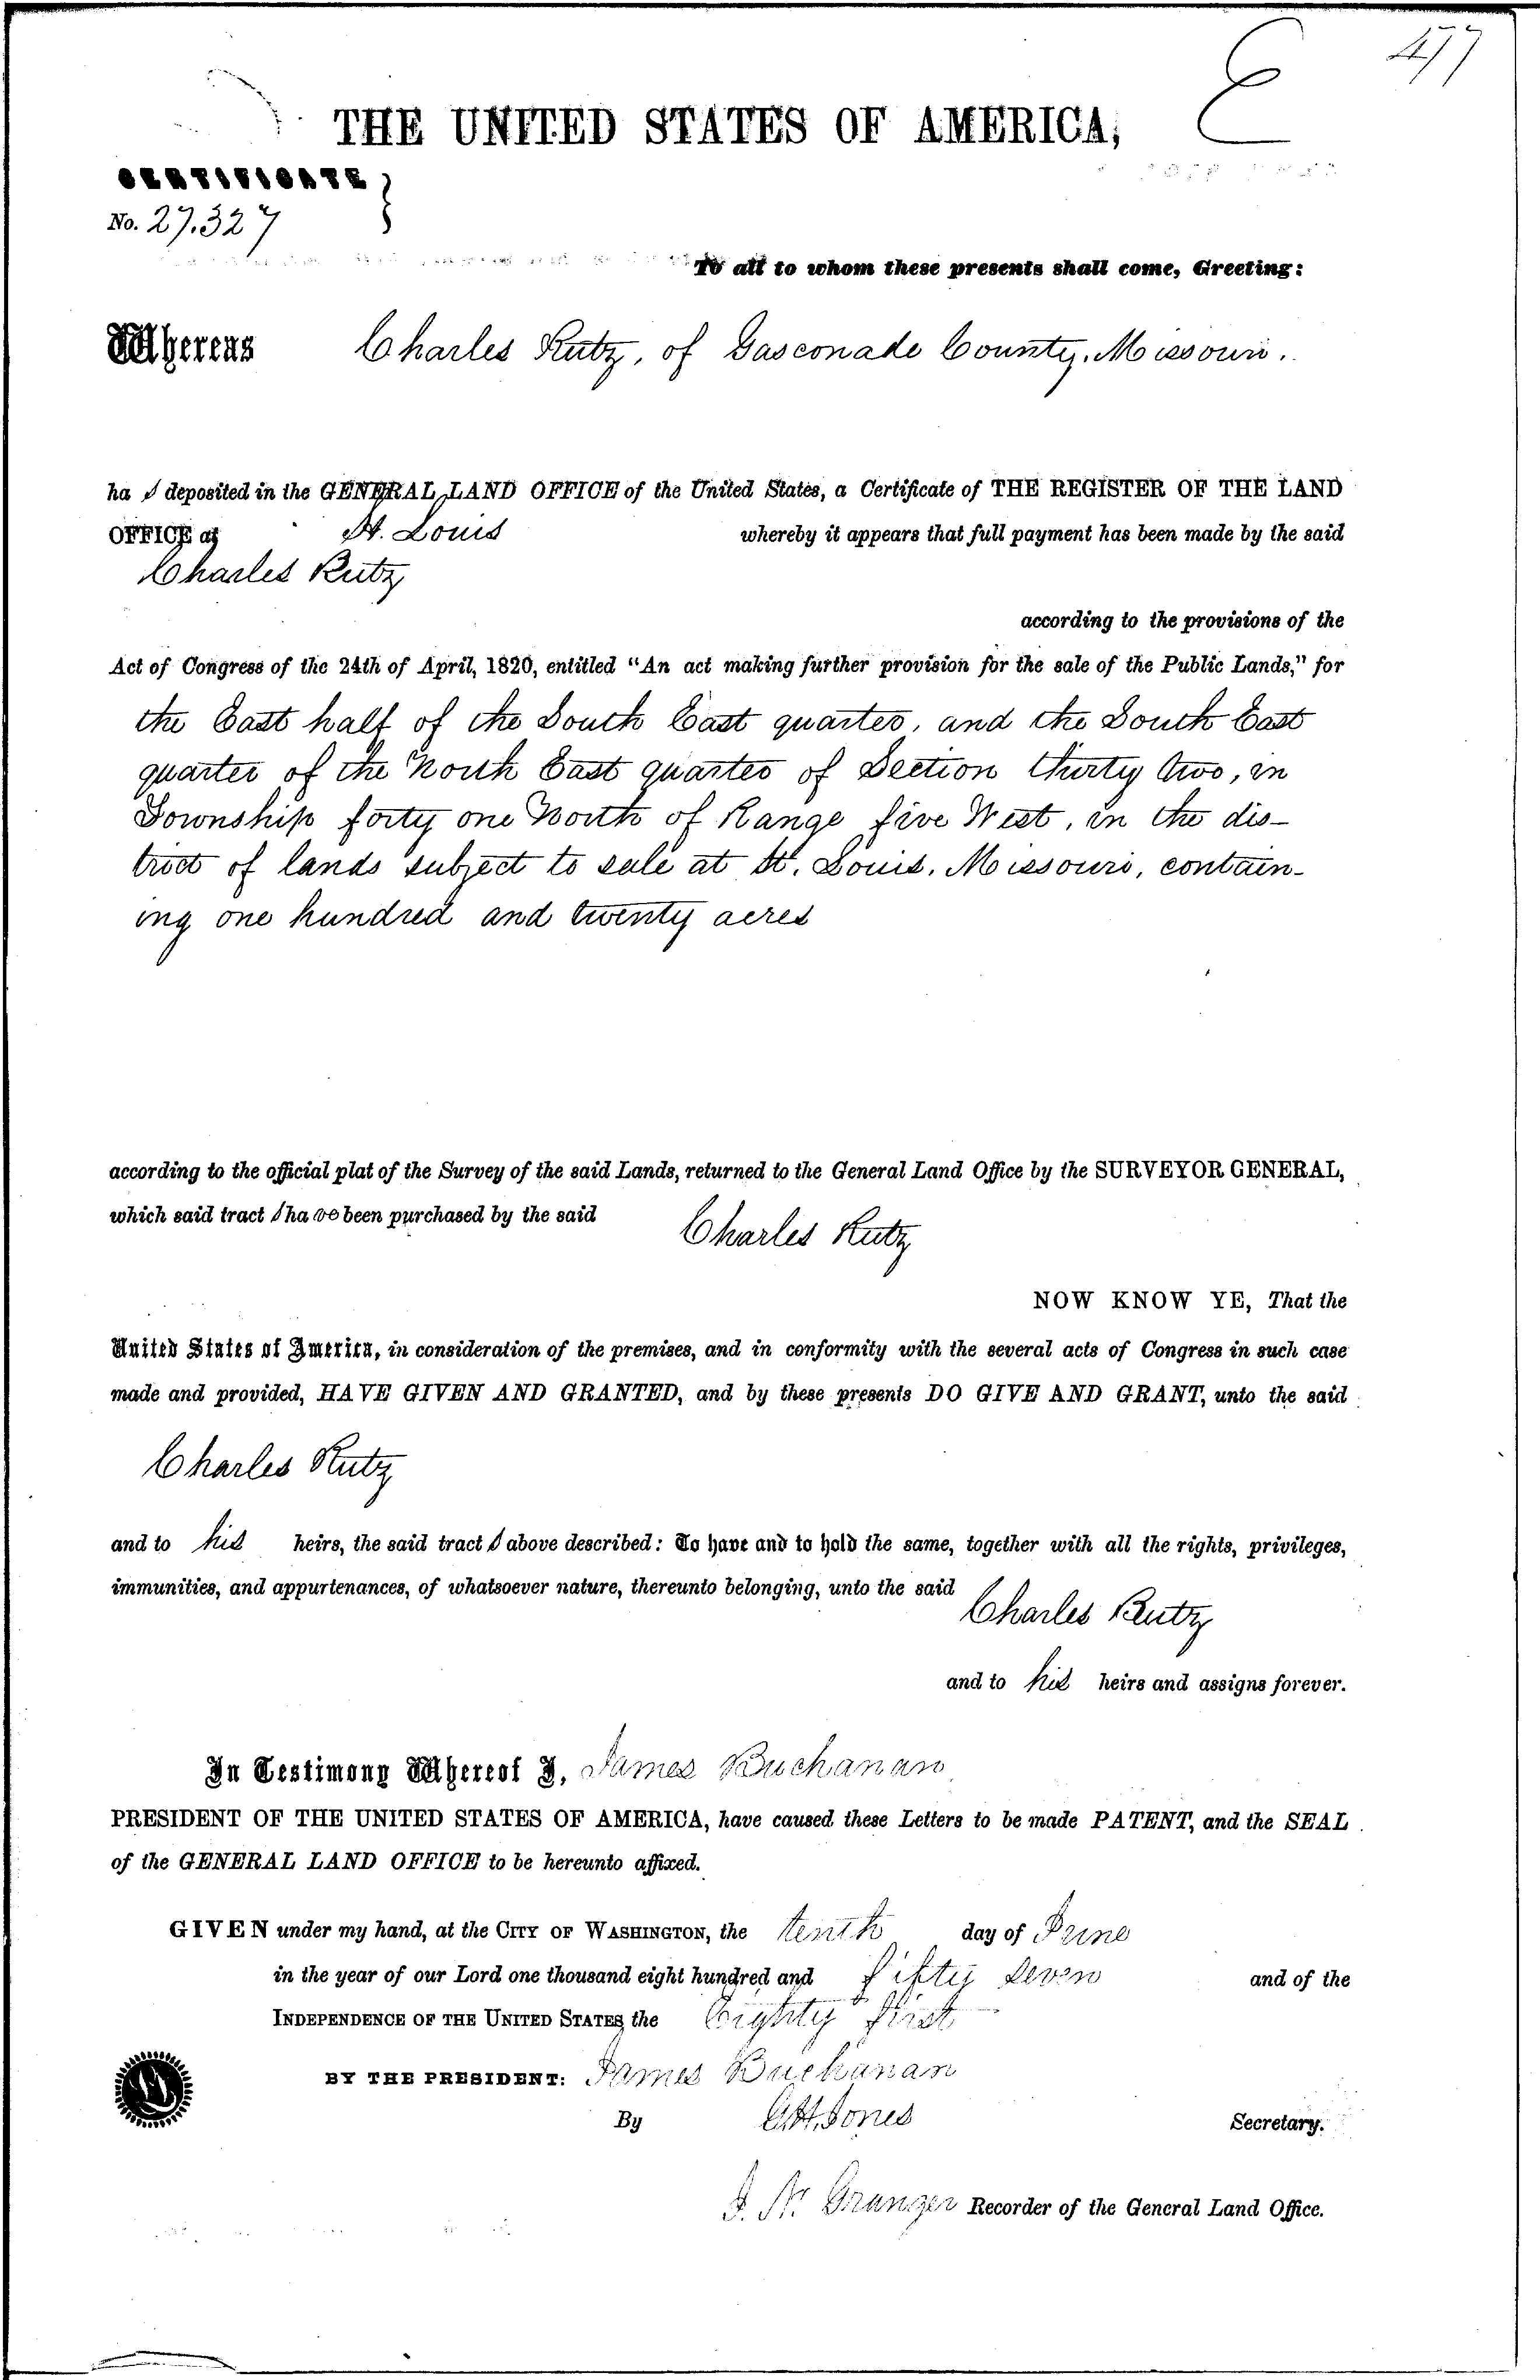 E 477
THE UNITED STATES OF AMERICA,
CERTIFICATE
No. 27.327
To all to whom these presents shall come, Greeting:
Whereas Charles Rutz, of Gasconade County, Missouri.
ha s deposited in the GENERAL LAND OFFICE of the United States, a Certificate of THE REGISTER OF THE LAND
OFFICE at St. Louis whereby it appears that full payment has been made by the said
Charles Rutz
according to the provisions of the
Act of Congress of the 24th of April, 1820, entitled "An act making further provision for the sale of the Public Lands," for
the East half of the South East quarter, and the South East
quarter of the North East quarter of Section thirty two, in
Township forty one North of Range five West, in the dis-
trict of lands subject to sale at St. Louis, Missouri, contain-
ing one hundred and twenty acres
according to the official plat of the Survey of the said Lands, returned to the General Land Office by the SURVEYOR GENERAL,
which said tract s ha ve been purchased by the said Charles Rutz
NOW KNOW YE, That the
United States of America, in consideration of the premises, and in conformity with the several acts of Congress in such case
made and provided, HAVE GIVEN AND GRANTED, and by these presents DO GIVE AND GRANT, unto the said
Charles Rutz
and to his heirs, the said tract s above described: To have and to hold the same, together with all the rights, privileges,
immunities, and appurtenances, of whatsoever nature, thereunto belonging, unto the said Charles Rutz
and to his heirs and assigns forever.
In Testimony Whereof I, James Buchanan
PRESIDENT OF THE UNITED STATES OF AMERICA, have caused these Letters to be made PATENT, and the SEAL
of the GENERAL LAND OFFICE to be hereunto affixed.
GIVEN under my hand, at the CITY OF WASHINGTON, the tenth day of June
in the year of our Lord one thousand eight hundred and fifty seven and of the
INDEPENDENCE OF THE UNITED STATES the eighty first
BY THE PRESIDENT: James Buchanan
By Jones Secretary.
J. N. Granger Recorder of the General Land Office.